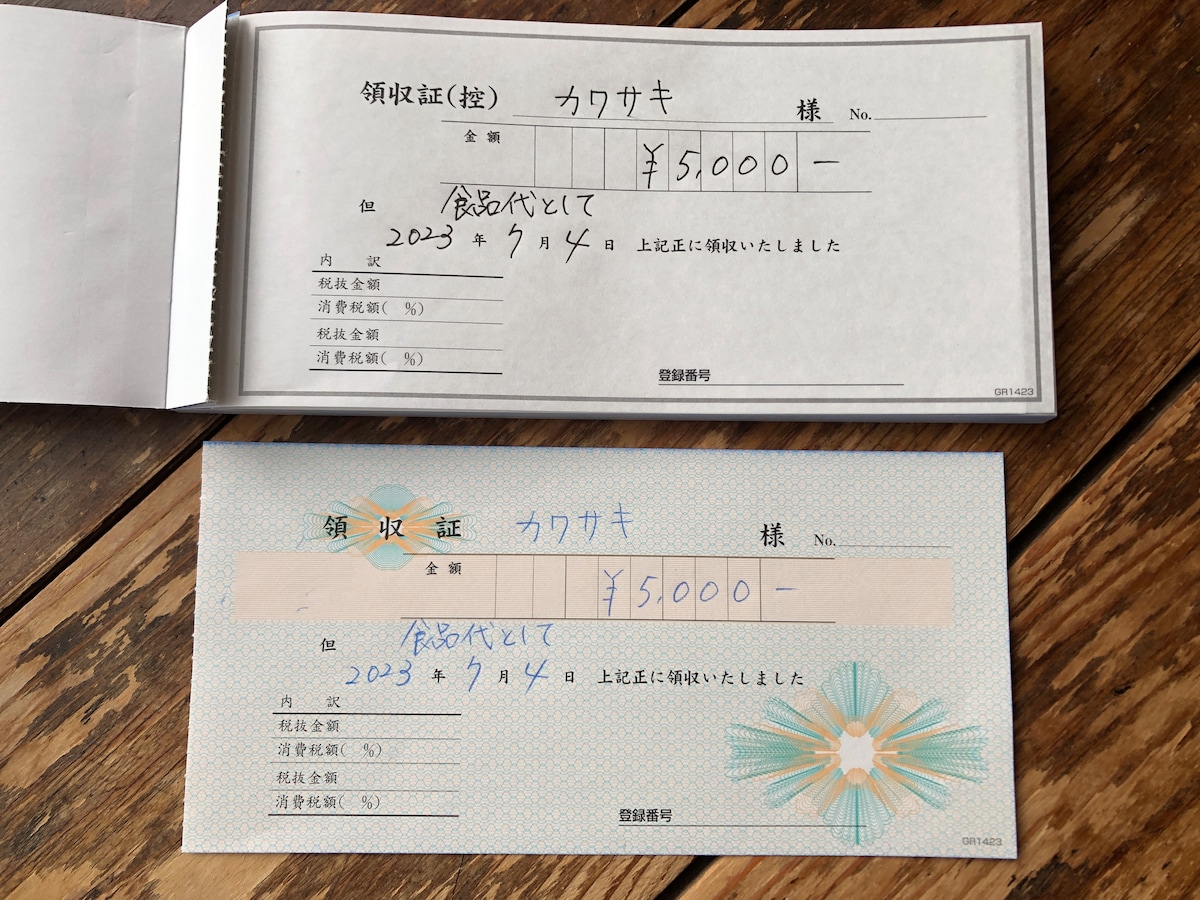 領収証(控) カワサキ 様 No.
金額 ¥5,000-
但 食品代として
2023年7月4日 上記正に領収いたしました
内訳
税抜金額
消費税額( %)
税抜金額
消費税額( %)
登録番号
GR1423
領収証 カワサキ 様 No.
金額 ¥5,000-
但 食品代として
2023年7月4日 上記正に領収いたしました
内訳
税抜金額
消費税額( %)
税抜金額
消費税額( %)
登録番号
GR1423